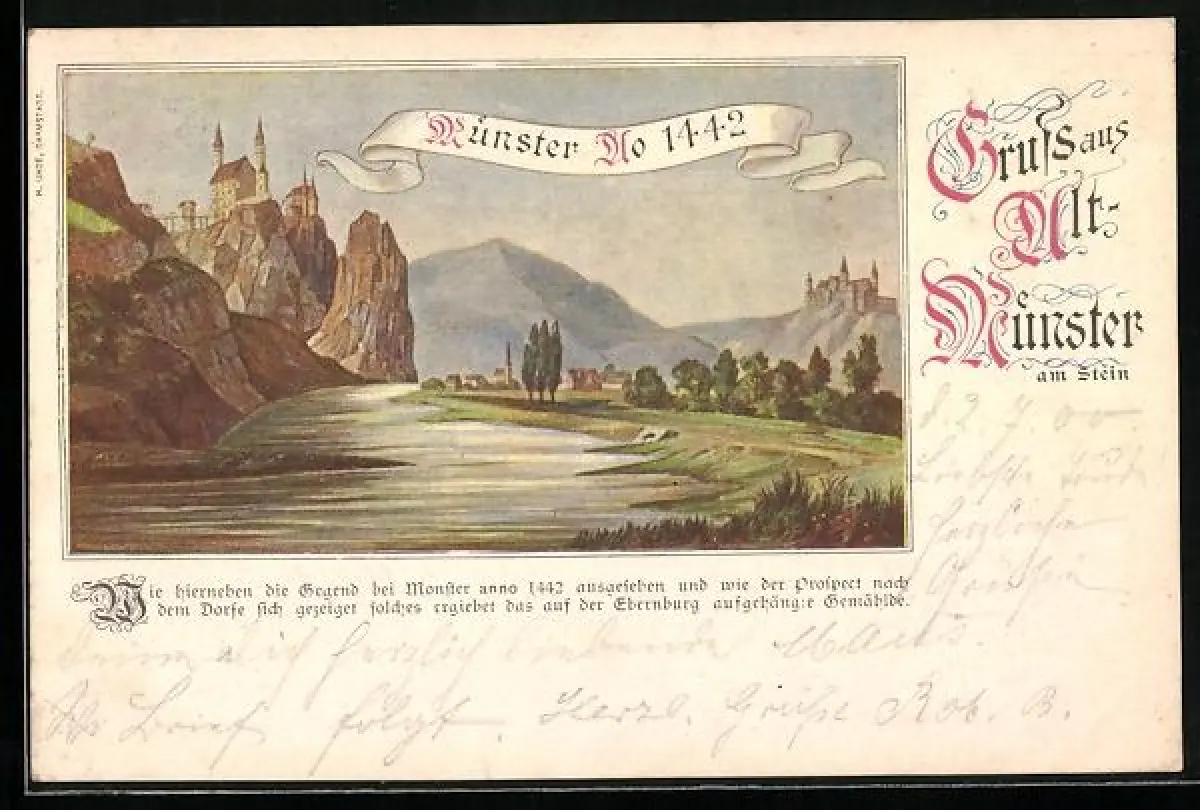 H. UHDE, DARMSTADT.
Münster Ao 1442
Gruss aus
Alt-
Münster
am Stein
Wie hierneben die Gegend bei Monster anno 1442 ausgesehen und wie der Prospect nach
dem Dorfe sich gezeiget solches ergiebet das auf der Ebernburg aufgehängte Gemählde.
d. 2. 7. 00.
herzliche
herzlich
Brief folgt. Herzl. Grüße Rob. B.